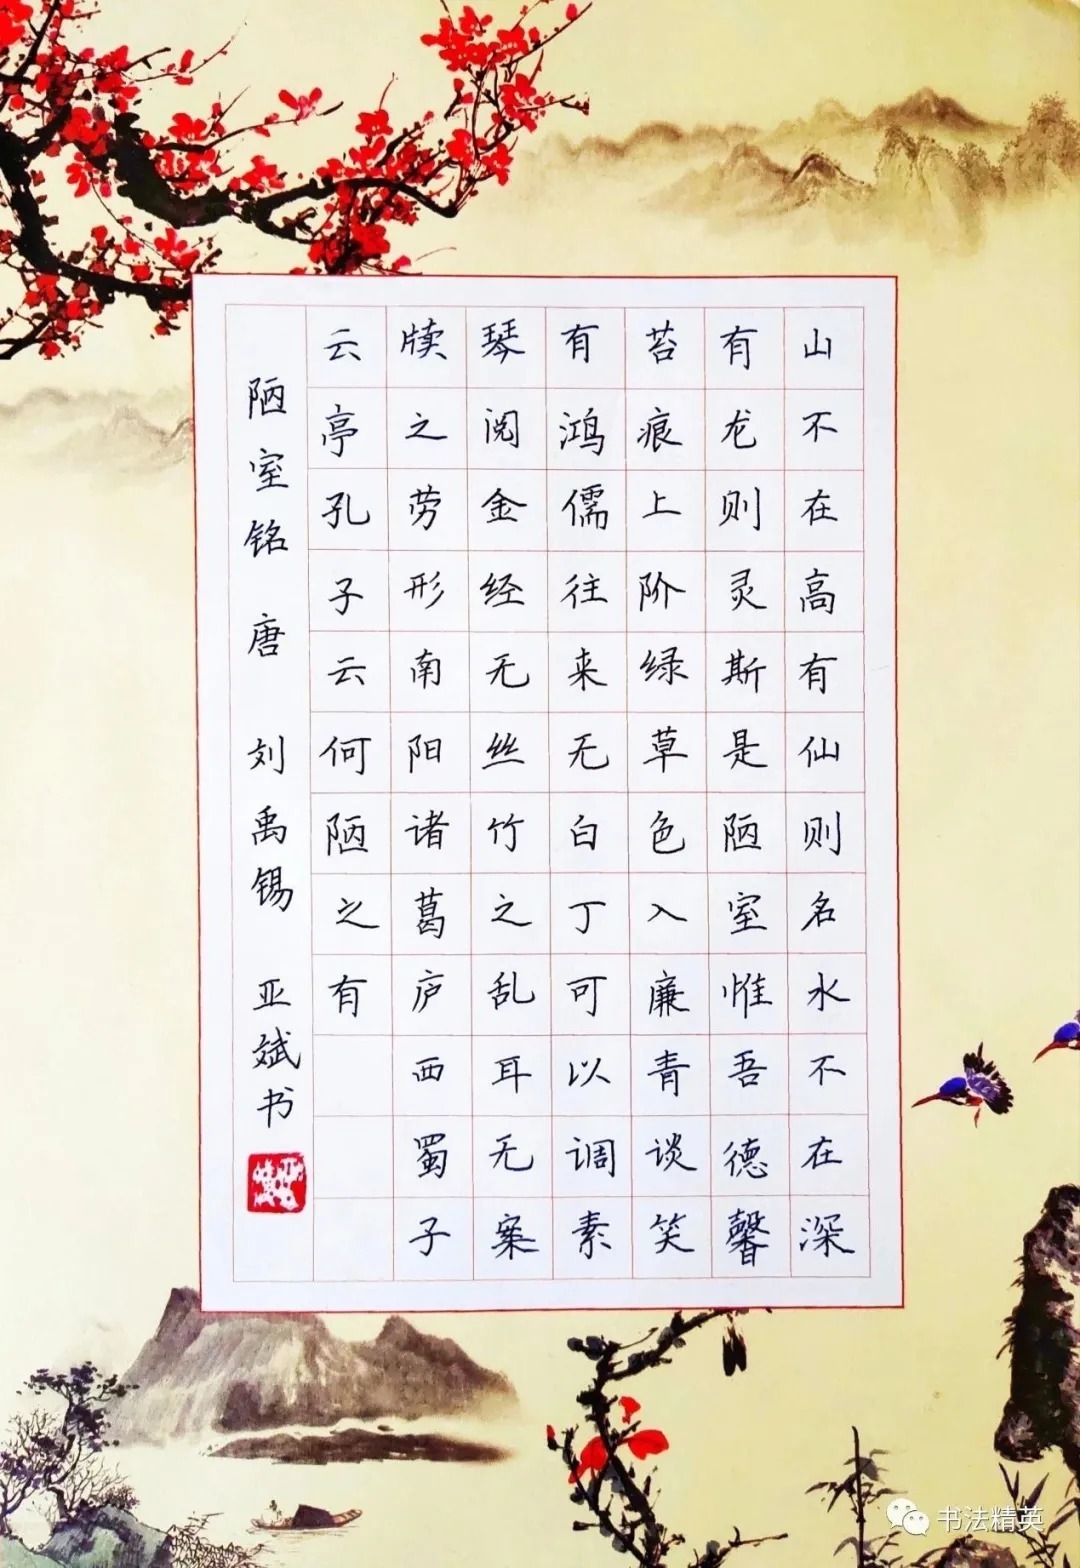 山不在高有仙则名水不在深
有龙则灵斯是陋室惟吾德馨
苔痕上阶绿草色入廉青谈笑
有鸿儒往来无白丁可以调素
琴阅金经无丝竹之乱耳无案
牍之劳形南阳诸葛庐西蜀子
云亭孔子云何陋之有
陋室铭 唐 刘禹锡 亚斌书
书法精英